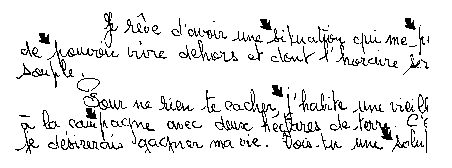 Je rêve d'avoir une situation qui me p
de pouvoir vivre dehors et dont l'horaire ser
souple.
Pour ne rien te cacher, j'habite une vieill
à la campagne avec deux hectares de terre. C'e
je désirerais gagner ma vie. Vois-tu une solu